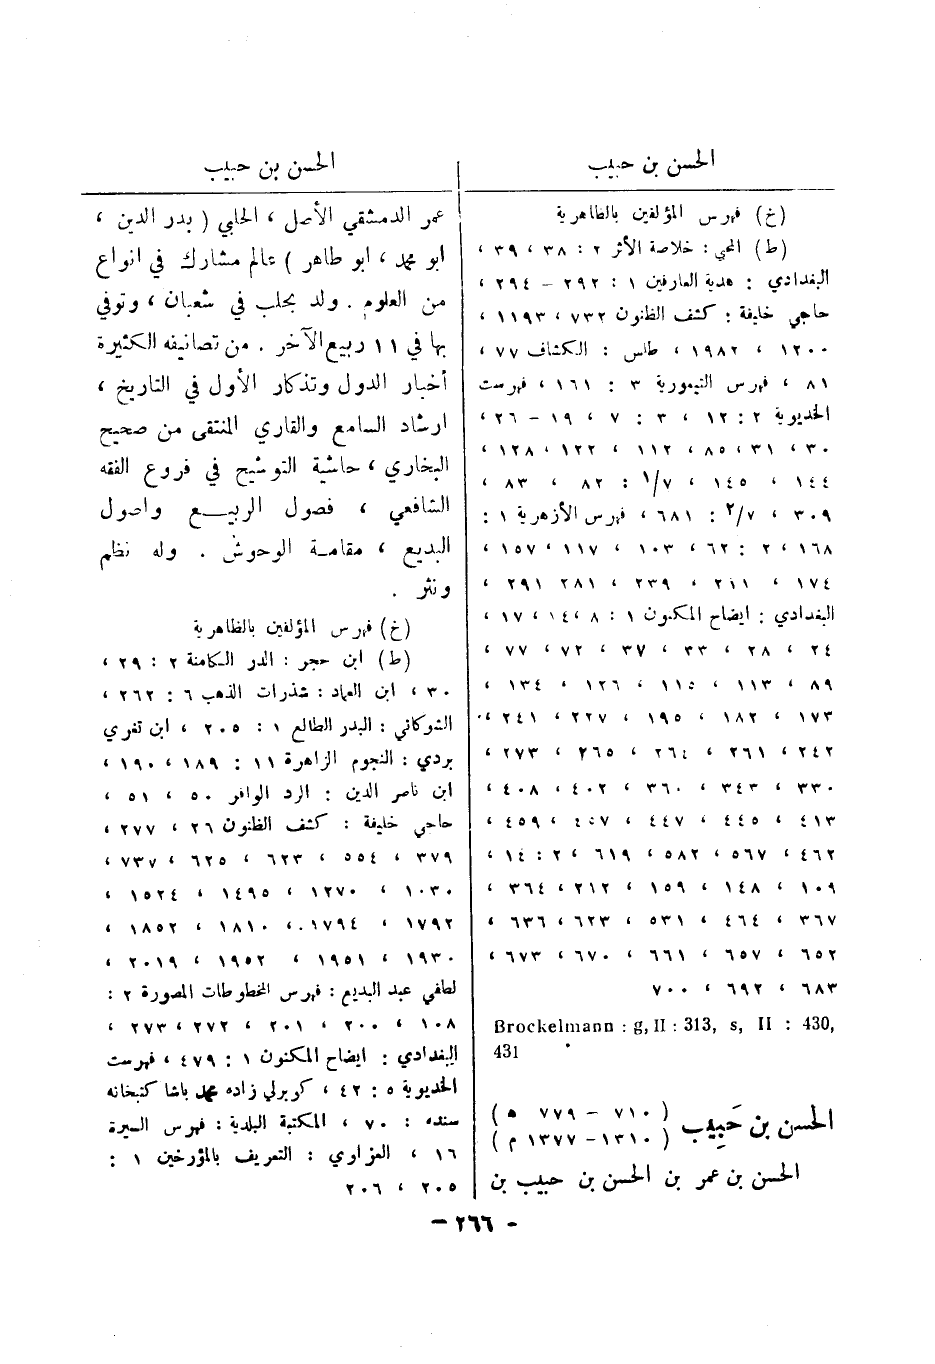 الحسن بن حبيب
(خ) فهرس المؤلفين بالظاهرية
(ط) المحبي : خلاصة الأثر ٢ : ٣٨ ، ٣٩ ،
البغدادي : هدية العارفين ١ : ٢٩٢ - ٢٩٤ ،
حاجي خليفة : كشف الظنون ٧٣٢ ، ١١٩٣ ،
١٢٠٠ ، ١٩٨٢ ، طلس : الكشاف ٧٧ ،
٨١ ، فهرس التيمورية ٣ : ١٦١ ، فهرست
الخديوية ٢ : ١٢ ، ٣ : ٧ ، ١٩ - ٢٦ ،
٣٠ ، ٣١ ، ٨٥ ، ١١٢ ، ١٢٢ ، ١٢٨ ،
١٤٤ ، ١٤٥ ، ١/٧ : ٨٢ ، ٨٣ ،
٣٠٩ ، ٢/٧ : ٦٨١ ، فهرس الأزهرية ١ :
١٦٨ ، ٢ : ٦٢ ، ١٠٣ ، ١١٧ ، ١٥٧ ،
١٧٤ ، ٢١١ ، ٢٣٩ ، ٢٨١ ، ٢٩١ ،
البغدادي : ايضاح المكنون ١ : ٨ ، ١٤ ، ١٧ ،
٢٤ ، ٢٨ ، ٣٣ ، ٣٧ ، ٧٢ ، ٧٧ ،
٨٩ ، ١١٣ ، ١١٥ ، ١٢٦ ، ١٣٤ ،
١٧٣ ، ١٨٢ ، ١٩٥ ، ٢٢٧ ، ٢٤١ ،
٢٤٢ ، ٢٦١ ، ٢٦٤ ، ٢٦٥ ، ٢٧٣ ،
٣٣٠ ، ٣٤٣ ، ٣٦٠ ، ٤٠٢ ، ٤٠٨ ،
٤١٣ ، ٤٤٥ ، ٤٤٧ ، ٤٥٧ ، ٤٥٩ ،
٤٦٢ ، ٥٦٧ ، ٥٨٢ ، ٦١٩ ، ٢ : ١٤ ،
١٠٩ ، ١٤٨ ، ١٥٩ ، ٢١٢ ، ٣٦٤ ،
٣٦٧ ، ٤٦٤ ، ٥٣١ ، ٦٢٣ ، ٦٣٦ ،
٦٥٢ ، ٦٥٧ ، ٦٦١ ، ٦٧٠ ، ٦٧٣ ،
٦٨٣ ، ٦٩٢ ، ٧٠٠
Brockelmann : g, II : 313, s, II : 430,
431
الحسن بن حَبِيب ( ٧١٠ - ٧٧٩ ه )
( ١٣١٠ - ١٣٧٧ م )
الحسن بن عمر بن الحسن بن حبيب بن
الحسن بن حبيب
عمر الدمشقي الأصل ، الحلبي ( بدر الدين ،
ابو محمد ، ابو طاهر ) عالم مشارك في انواع
من العلوم . ولد بحلب في شعبان ، وتوفي
بها في ١١ ربيع الآخر . من تصانيفه الكثيرة
أخبار الدول وتذكار الأول في التاريخ ،
ارشاد السامع والقاري المنتقى من صحيح
البخاري ، حاشية التوشيح في فروع الفقه
الشافعي ، فصول الربيع واصول
البديع ، مقامة الوحوش . وله نظم
ونثر .
(خ) فهرس المؤلفين بالظاهرية
(ط) ابن حجر : الدرر الكامنة ٢ : ٢٩ ،
٣٠ ، ابن العماد : شذرات الذهب ٦ : ٢٦٢ ،
الشوكاني : البدر الطالع ١ : ٢٠٥ ، ابن تغري
بردي : النجوم الزاهرة ١١ : ١٨٩ ، ١٩٠ ،
ابن ناصر الدين : الرد الوافر ٥٠ ، ٥١ ،
حاجي خليفة : كشف الظنون ٢٦ ، ٢٧٧ ،
٣٧٩ ، ٥٥٤ ، ٦٢٣ ، ٦٢٥ ، ٧٣٧ ،
١٠٣٠ ، ١٢٧٠ ، ١٤٩٥ ، ١٥٢٤ ،
١٧٩٢ ، ١٧٩٤ ، ١٨١٠ ، ١٨٥٢ ،
١٩٣٠ ، ١٩٥١ ، ١٩٥٢ ، ٢٠١٩ ،
لطفي عبد البديع : فهرس المخطوطات المصورة ٢ :
١٠٨ ، ٢٠٠ ، ٢٠١ ، ٢٧٢ ، ٢٧٣ ،
البغدادي : ايضاح المكنون ١ : ٤٧٩ ، فهرست
الخديوية ٥ : ٤٢ ، كوبرلي زاده محمد باشا كتبخانه
سنده : ٧٠ ، المكتبة البلدية : فهرس السيرة
١٦ ، العزاوي : التعريف بالمؤرخين ١ :
٢٠٥ ، ٢٠٦
- ٢٦٦ -